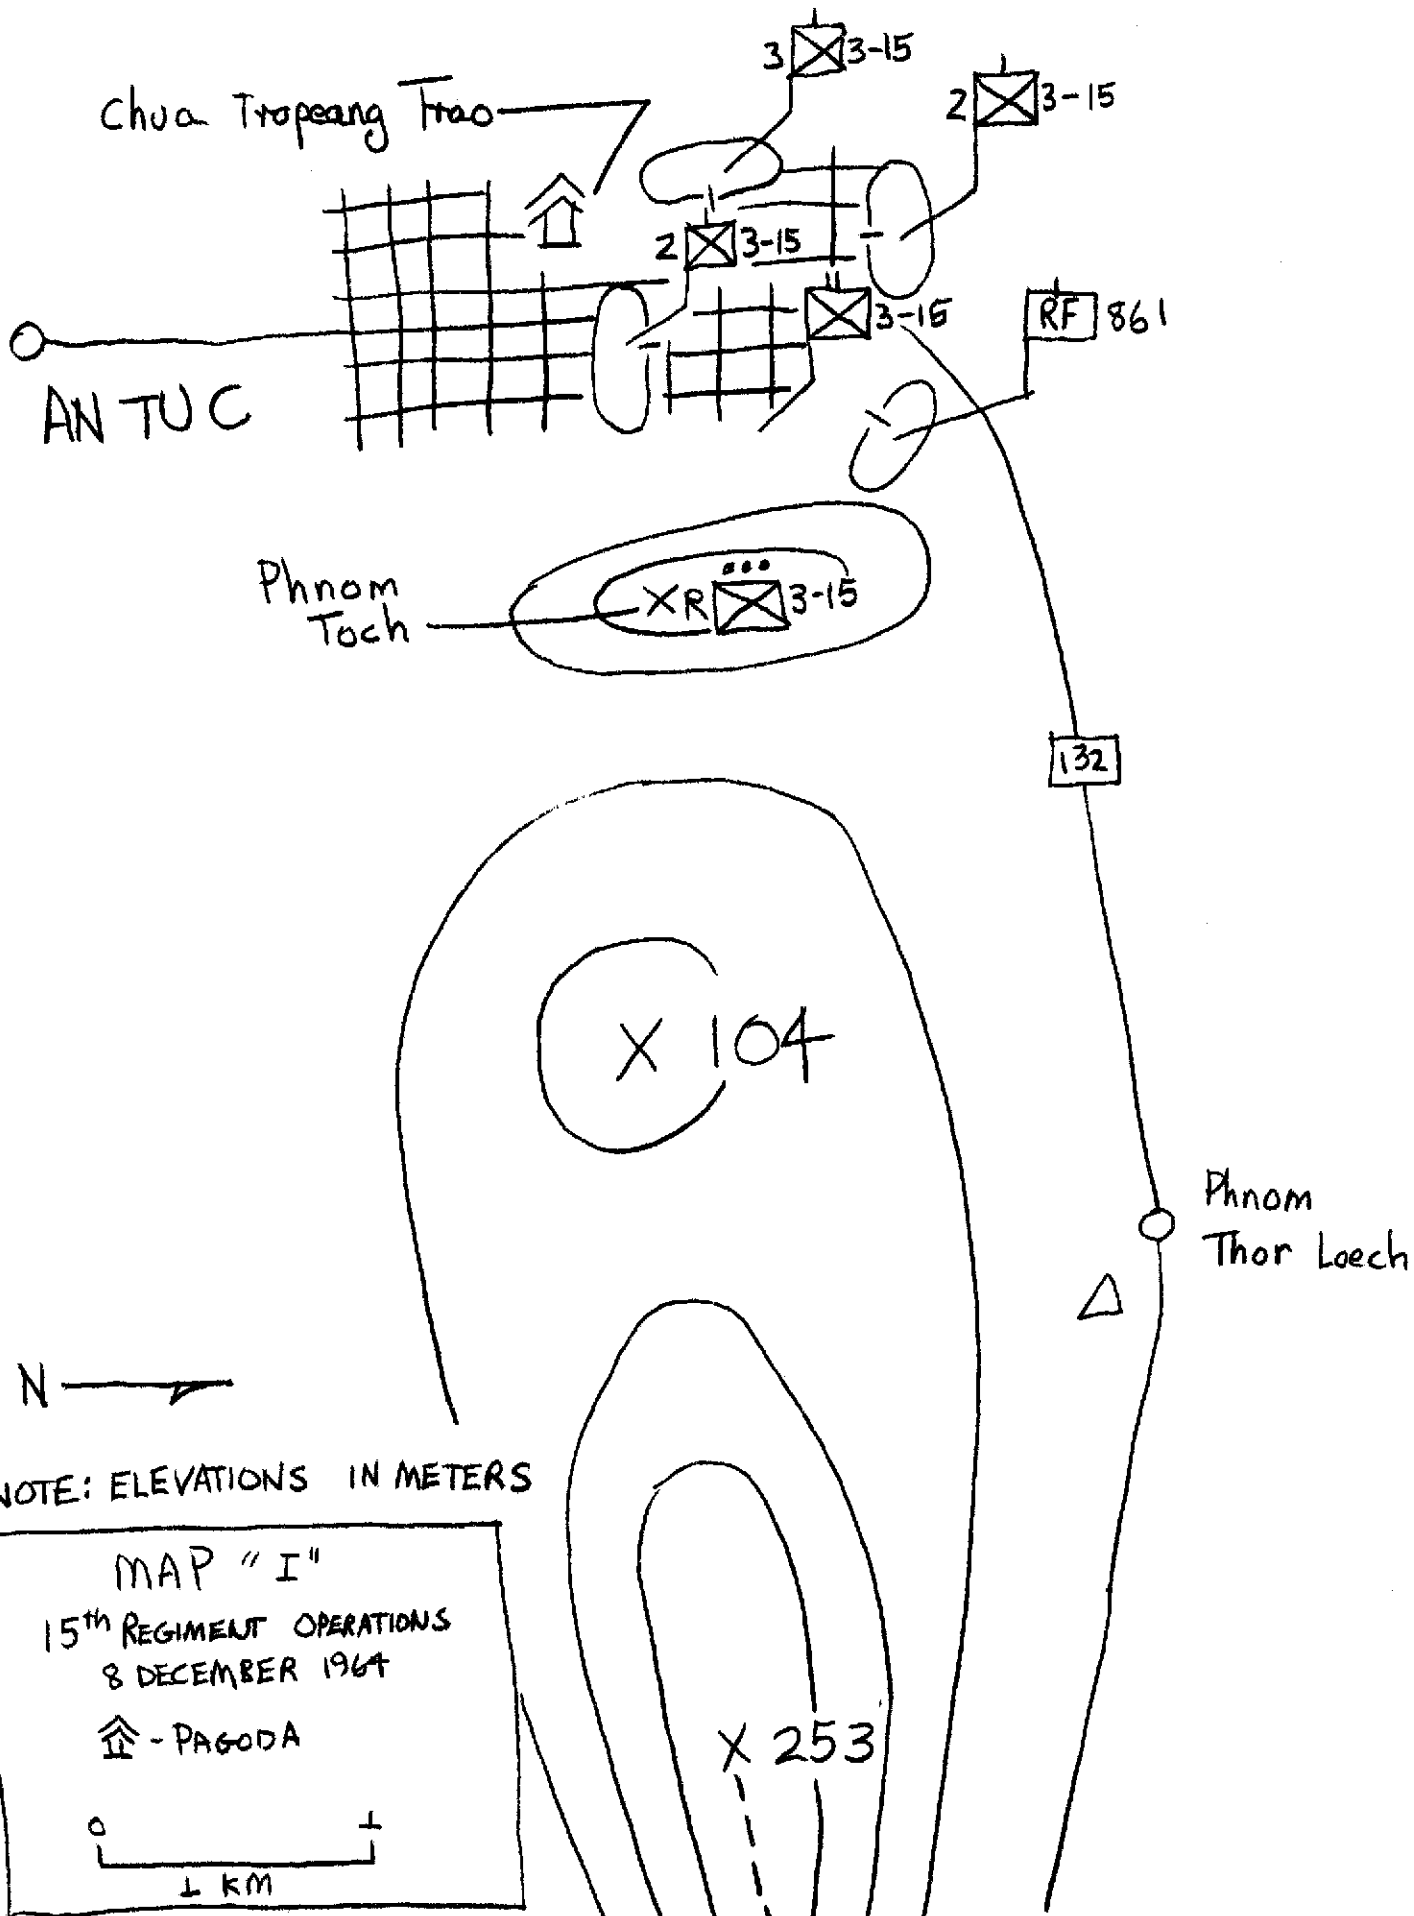 3 3-15
2 3-15
Chua Tropeang Trao
2 3-15
3-15
RF 861
AN TUC
Phnom
Toch
X R 3-15
132
X 104
Phnom
Thor Loech
N
NOTE: ELEVATIONS IN METERS
MAP "I"
15th REGIMENT OPERATIONS
8 DECEMBER 1964
- PAGODA
X 253
0 1
1 KM